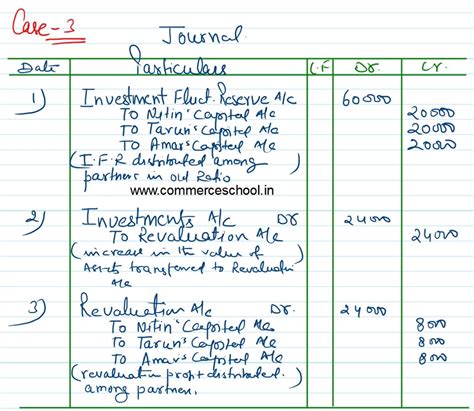 Case-3
Journal
Date Particulars L.F Dr. Cr.
1) Investment Fluct. Reserve A/c 60000
To Nitin's Capital A/c 20000
To Tarun's Capital A/c 20000
To Amar's Capital A/c 20000
(I.F.R distributed among
partners in old Ratio
www.commerceschool.in
2) Investments A/c Dr 24000
To Revaluation A/c 24000
(increase in the value of
Assets transferred to Revaluation
A/c
3) Revaluation A/c Dr. 24000
To Nitin's Capital A/c 8000
To Tarun's Capital A/c 8000
To Amar's Capital A/c 8000
(revaluation profit distributed.
among partners.)